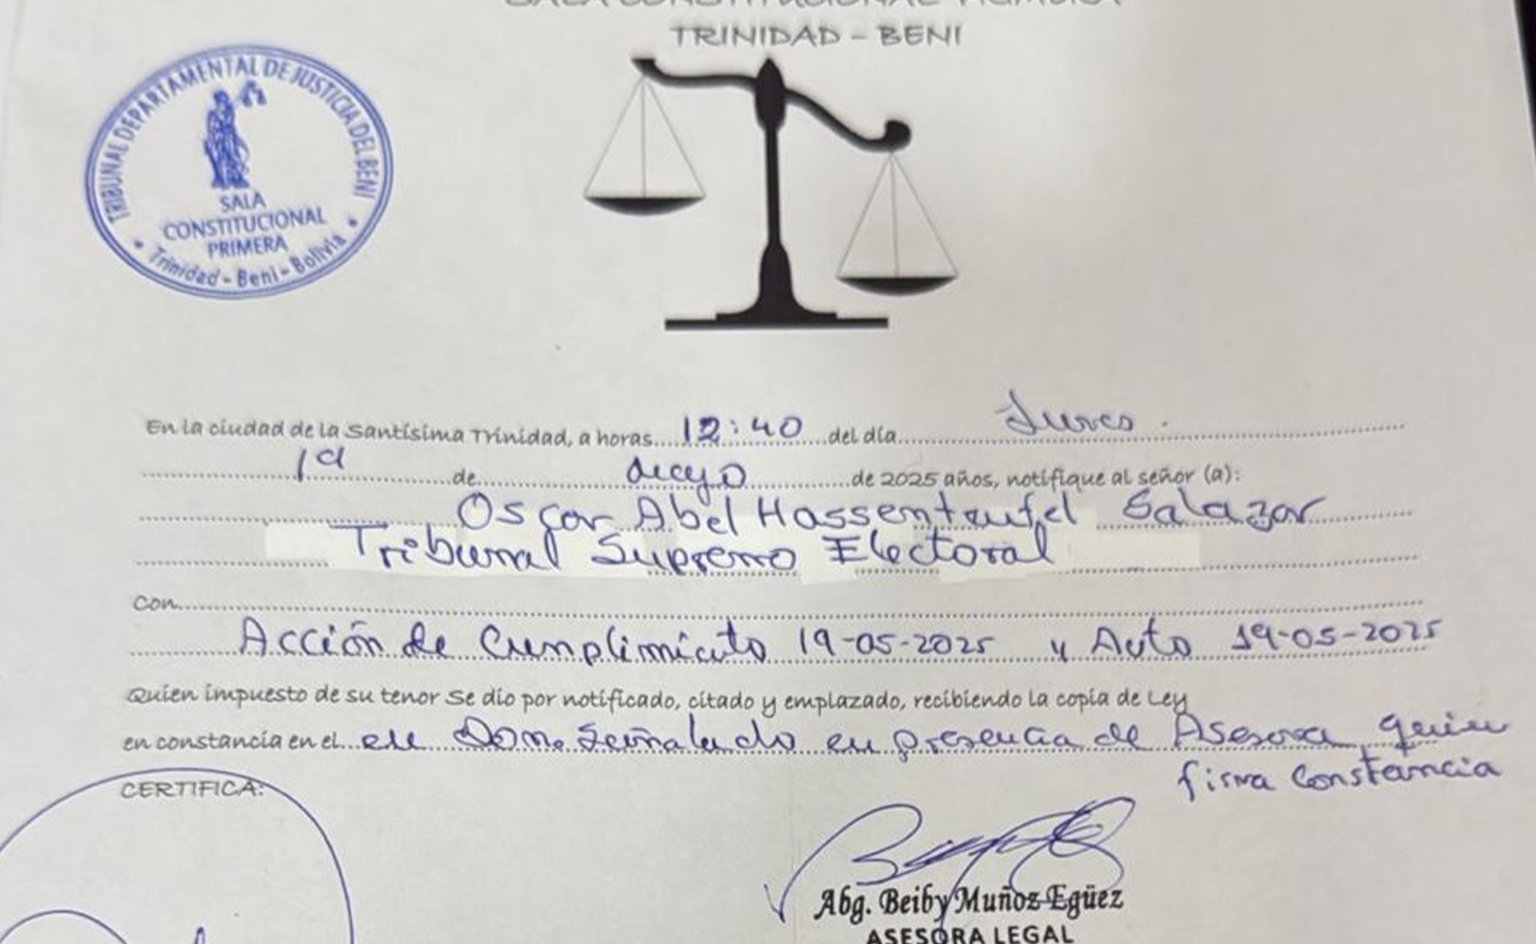 SALA CONSTITUCIONAL PRIMERA
TRINIDAD - BENI
TRIBUNAL DEPARTAMENTAL DE JUSTICIA DEL BENI
SALA
CONSTITUCIONAL
PRIMERA
Trinidad - Beni - Bolivia
En la ciudad de la Santísima Trinidad, a horas 12:40 del día Lunes.
19 de Mayo de 2025 años, notifique al señor (a):
Oscar Abel Hassenteufel Salazar
Tribunal Supremo Electoral
Con
Acción de Cumplimiento 19-05-2025 y Auto 19-05-2025
Quien impuesto de su tenor Se dio por notificado, citado y emplazado, recibiendo la copia de Ley
en constancia en el en Dom. Señalado en presencia de Asesora quien
firma Constancia
CERTIFICA:
Abg. Beiby Muñoz Egüez
ASESORA LEGAL